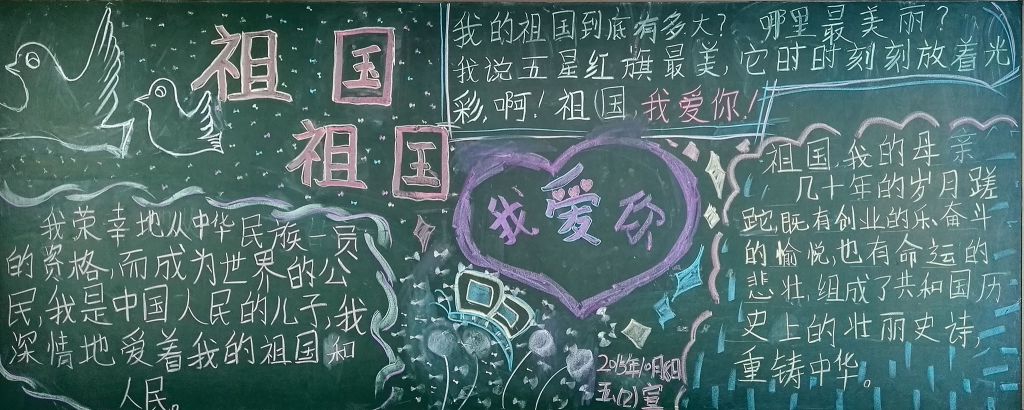 祖国
祖国
我的祖国到底有多大？哪里最美丽？
我说五星红旗最美，它时时刻刻放着光
彩，啊！祖国，我爱你！
我爱你
我荣幸地从中华民族一员
的资格，而成为世界的公
民，我是中国人民的儿子，我
深情地爱着我的祖国和
人民。
祖国，我的母亲
几十年的岁月蹉
跎，既有创业的乐，奋斗
的愉悦，也有命运的
悲壮，组成了共和国历
史上的壮丽史诗，
重铸中华。
2015年10月
五(2)宣